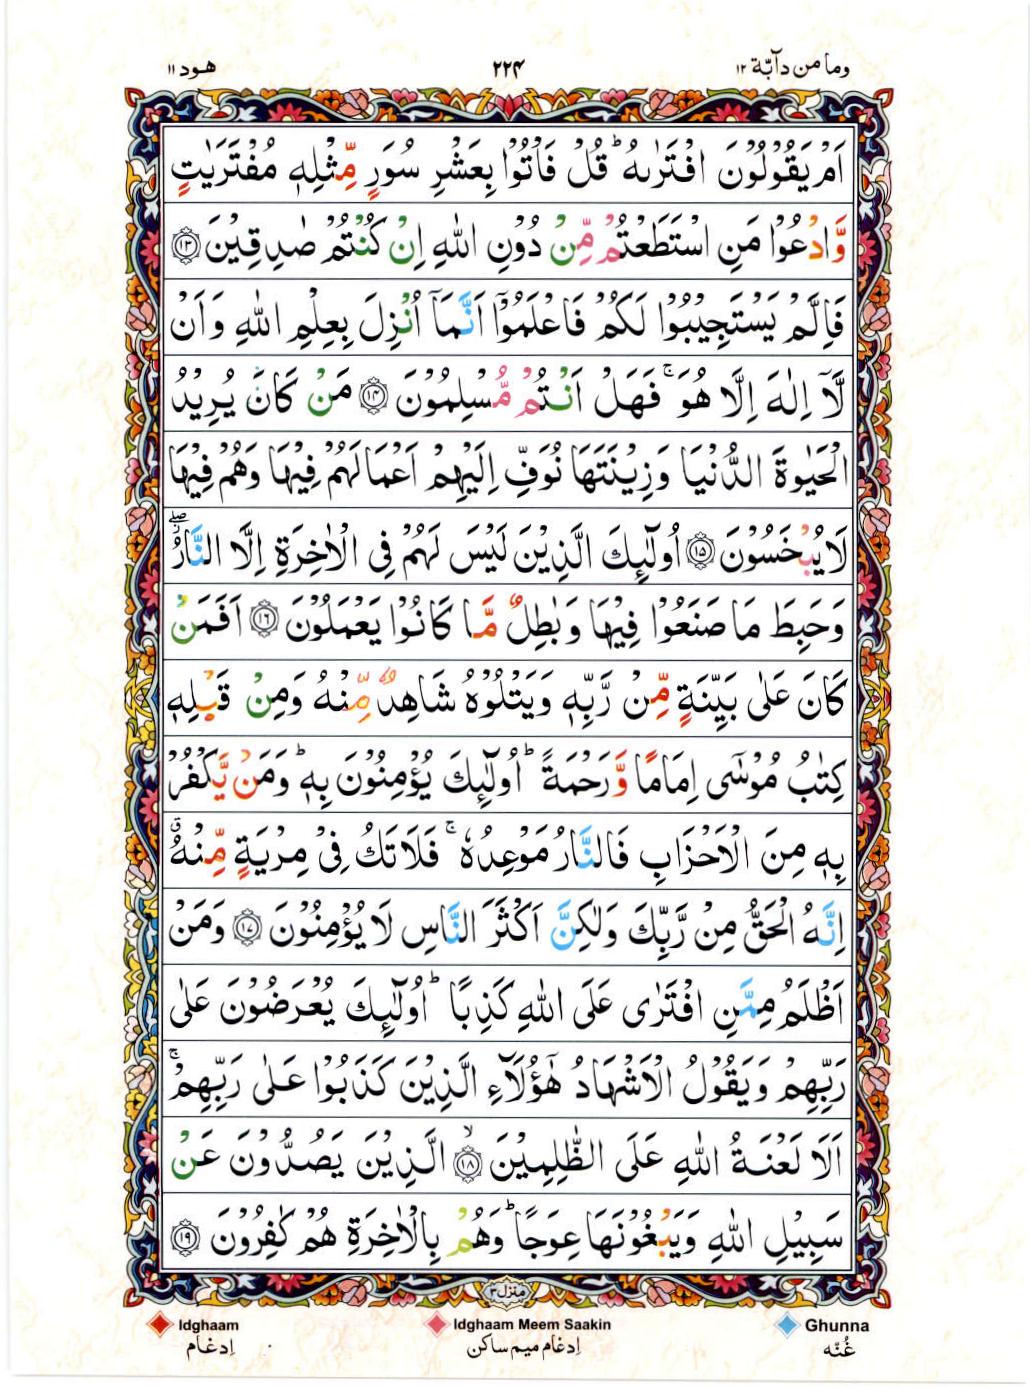 وما من دآبّة ١٢
٢٢۴
هود ١١
اَمْ يَقُوْلُوْنَ افْتَرٰىهُ ؕ قُلْ فَاْتُوْا بِعَشْرِ سُوَرٍ مِّثْلِهٖ مُفْتَرَيٰتٍ
وَّادْعُوْا مَنِ اسْتَطَعْتُمْ مِّنْ دُوْنِ اللّٰهِ اِنْ كُنْتُمْ صٰدِقِيْنَ ۝١٣
فَاِلَّمْ يَسْتَجِيْبُوْا لَكُمْ فَاعْلَمُوْۤا اَنَّمَاۤ اُنْزِلَ بِعِلْمِ اللّٰهِ وَاَنْ
لَّاۤ اِلٰهَ اِلَّا هُوَ ۚ فَهَلْ اَنْتُمْ مُّسْلِمُوْنَ ۝١۴ مَنْ كَانَ يُرِيْدُ
الْحَيٰوةَ الدُّنْيَا وَزِيْنَتَهَا نُوَفِّ اِلَيْهِمْ اَعْمَالَهُمْ فِيْهَا وَهُمْ فِيْهَا
لَا يُبْخَسُوْنَ ۝١۵ اُولٰٓئِكَ الَّذِيْنَ لَيْسَ لَهُمْ فِى الْاٰخِرَةِ اِلَّا النَّارُ ۖ
وَحَبِطَ مَا صَنَعُوْا فِيْهَا وَبٰطِلٌ مَّا كَانُوْا يَعْمَلُوْنَ ۝١٦ اَفَمَنْ
كَانَ عَلٰى بَيِّنَةٍ مِّنْ رَّبِّهٖ وَيَتْلُوْهُ شَاهِدٌ مِّنْهُ وَمِنْ قَبْلِهٖ
كِتٰبُ مُوْسٰٓى اِمَامًا وَّرَحْمَةً ؕ اُولٰٓئِكَ يُؤْمِنُوْنَ بِهٖ ؕ وَمَنْ يَّكْفُرْ
بِهٖ مِنَ الْاَحْزَابِ فَالنَّارُ مَوْعِدُهٗ ۚ فَلَا تَكُ فِيْ مِرْيَةٍ مِّنْهُ ۗ
اِنَّهُ الْحَقُّ مِنْ رَّبِّكَ وَلٰكِنَّ اَكْثَرَ النَّاسِ لَا يُؤْمِنُوْنَ ۝١٧ وَمَنْ
اَظْلَمُ مِمَّنِ افْتَرٰى عَلَى اللّٰهِ كَذِبًا ؕ اُولٰٓئِكَ يُعْرَضُوْنَ عَلٰى
رَبِّهِمْ وَيَقُوْلُ الْاَشْهَادُ هٰٓؤُلَآءِ الَّذِيْنَ كَذَبُوْا عَلٰى رَبِّهِمْ ۚ
اَلَا لَعْنَةُ اللّٰهِ عَلَى الظّٰلِمِيْنَ ۙ۝١٨ الَّذِيْنَ يَصُدُّوْنَ عَنْ
سَبِيْلِ اللّٰهِ وَيَبْغُوْنَهَا عِوَجًا ؕ وَهُمْ بِالْاٰخِرَةِ هُمْ كٰفِرُوْنَ ۝١٩
منزل ٣
Idghaam
Idghaam Meem Saakin
Ghunna
اِدغام
اِدغام میم ساکن
غُنّه